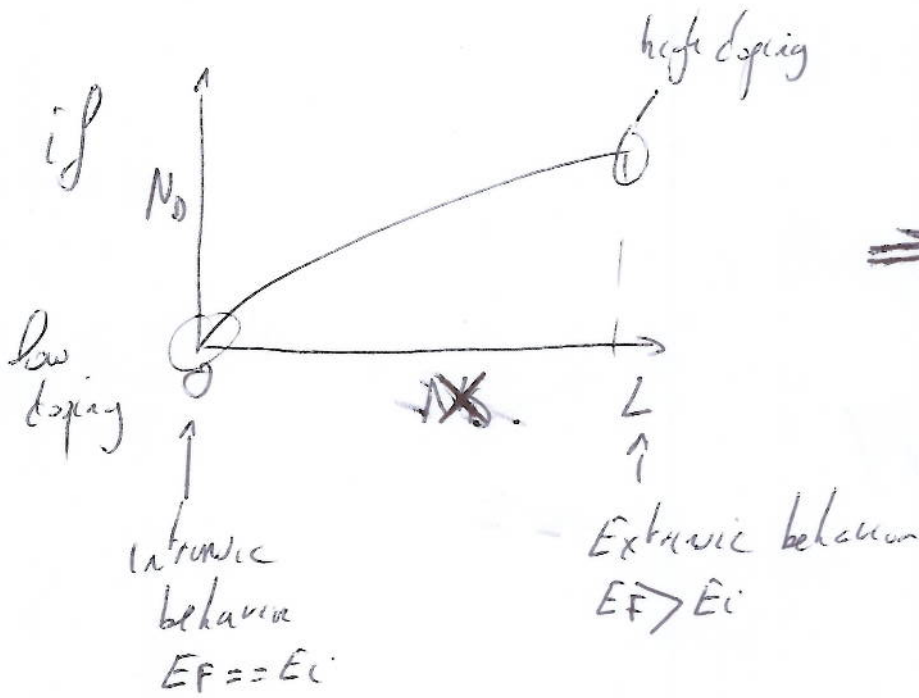 high doping
if
N_D
⇒
low
doping
0
L
↑
↑
intrinsic
behavior
EF == Ei
Extrinsic behavior
EF > Ei